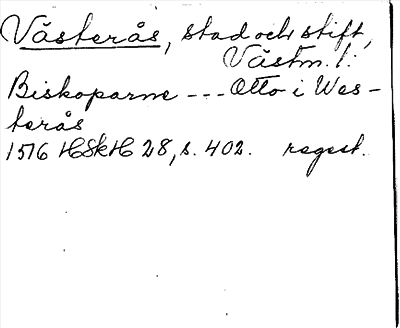 Västerås, stad och stift,
Västm. l.
Biskoparne --- Otto i Wes-
terås
1516 HSkH 28, s. 402. regest.